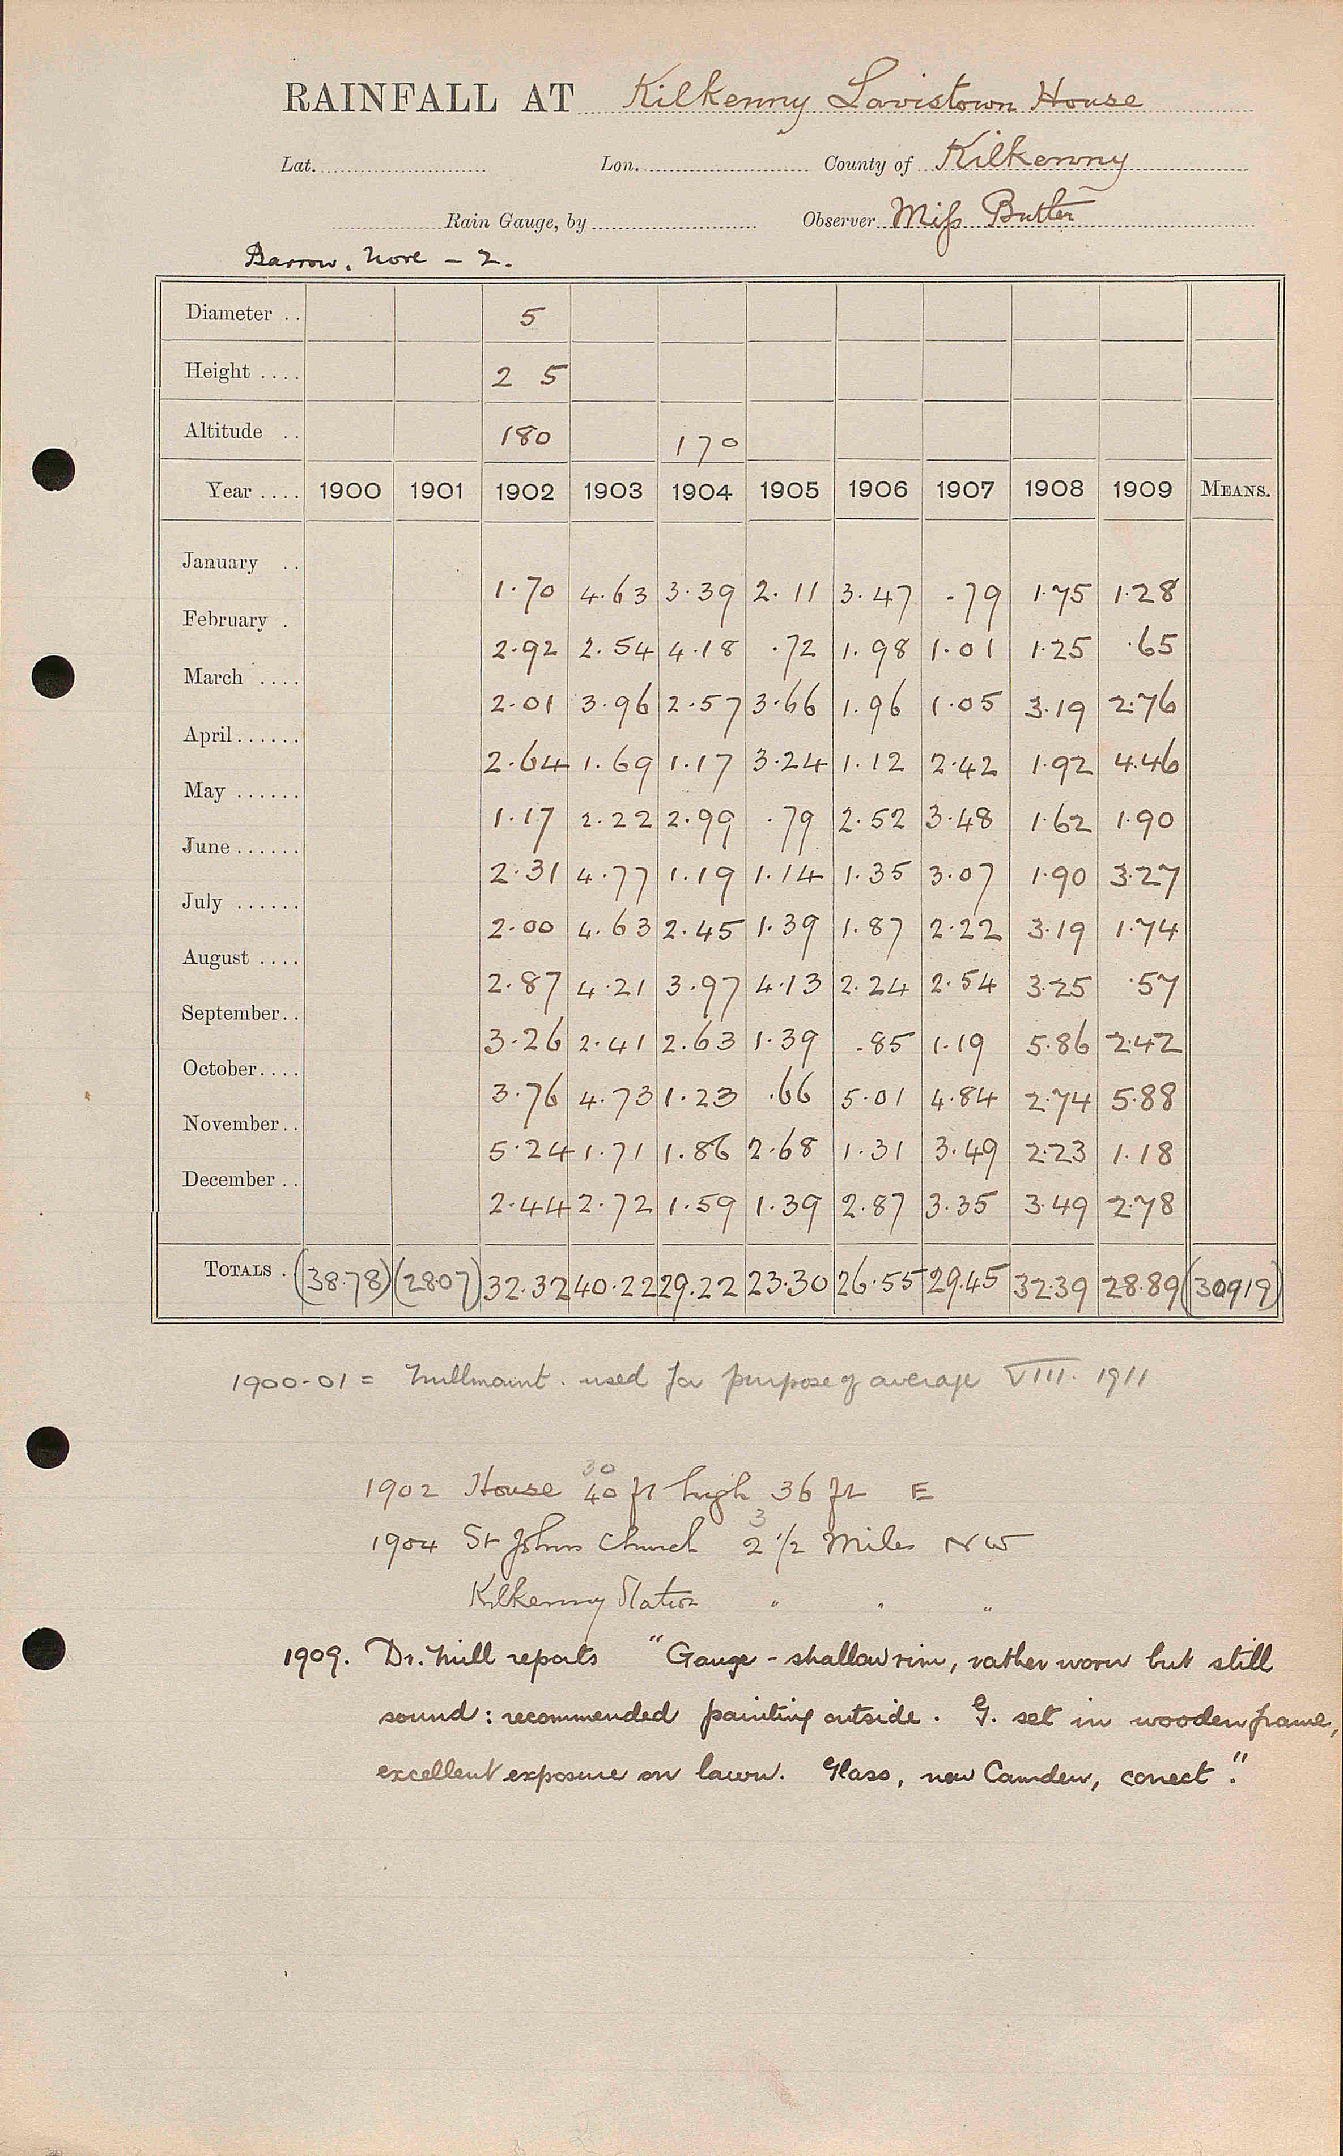 RAINFALL AT Kilkenny Lavistown House
Lat. Lon. County of Kilkenny
Rain Gauge, by Observer Miss Butler
Barrow, Nore – 2.
Diameter .. 5
Height .... 2 5
Altitude .. 180 170
Year .... 1900 1901 1902 1903 1904 1905 1906 1907 1908 1909 MEANS.
January .. 1.70 4.63 3.39 2.11 3.47 .79 1.75 1.28
February . 2.92 2.54 4.18 .72 1.98 1.01 1.25 .65
March .... 2.01 3.96 2.57 3.66 1.96 1.05 3.19 2.76
April...... 2.64 1.69 1.17 3.24 1.12 2.42 1.92 4.46
May ...... 1.17 2.22 2.99 .79 2.52 3.48 1.62 1.90
June...... 2.31 4.77 1.19 1.14 1.35 3.07 1.90 3.27
July ...... 2.00 4.63 2.45 1.39 1.87 2.22 3.19 1.74
August .... 2.87 4.21 3.97 4.13 2.24 2.54 3.25 .57
September.. 3.26 2.41 2.63 1.39 .85 1.19 5.86 2.42
October.... 3.76 4.73 1.23 .66 5.01 4.84 2.74 5.88
November.. 5.24 1.71 1.86 2.68 1.31 3.49 2.23 1.18
December .. 2.44 2.72 1.59 1.39 2.87 3.35 3.49 2.78
TOTALS . (38.78) (28.07) 32.32 40.22 29.22 23.30 26.55 29.45 32.39 28.89 (30919)
1900-01 = used for purpose of average VIII. 1911
30
1902 House 40 ft high 36 ft E
3
1904 St Johns Church 2 1/2 Miles NW
Kilkenny Station " " "
1909. Dr. Mill reports "Gauge - shallow rim, rather worn but still
sound: recommended painting outside. G. set in wooden frame,
excellent exposure on lawn. Glass, new Camden, correct."